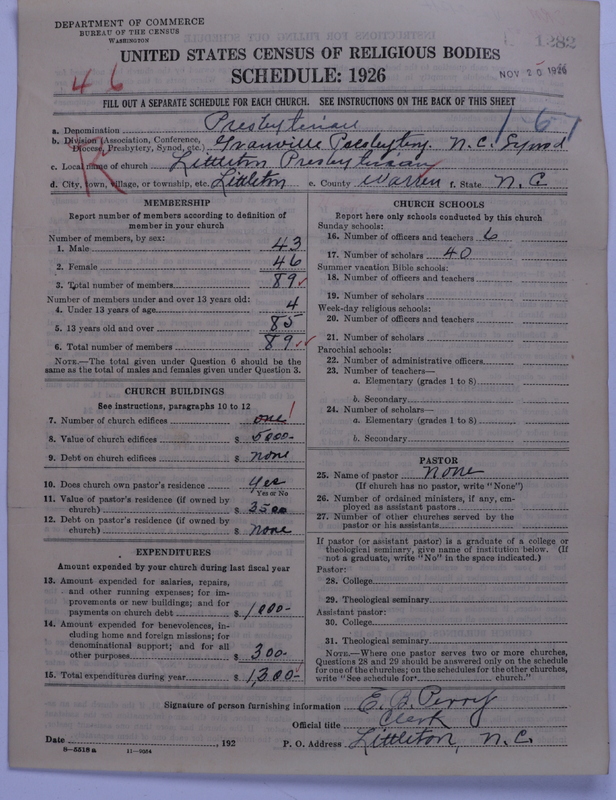 DEPARTMENT OF COMMERCE
BUREAU OF THE CENSUS
WASHINGTON
1282
UNITED STATES CENSUS OF RELIGIOUS BODIES
SCHEDULE: 1926
NOV 20 1926
46
FILL OUT A SEPARATE SCHEDULE FOR EACH CHURCH. SEE INSTRUCTIONS ON THE BACK OF THIS SHEET
1-67
a. Denomination Presbyterian
b. Division (Association, Conference, Diocese, Presbytery, Synod, etc.) Granville Presbytery N.C. Synod
c. Local name of church Littleton Presbyterian
d. City, town, village, or township, etc. Littleton e. County Warren f. State N.C
MEMBERSHIP
Report number of members according to definition of
member in your church
Number of members, by sex:
1. Male 43
2. Female 46
3. Total number of members 89
Number of members under and over 13 years old:
4. Under 13 years of age 4
5. 13 years old and over 85
6. Total number of members 89
NOTE.—The total given under Question 6 should be
same as the total of males and females given under Question 3.
CHURCH BUILDINGS
See instructions, paragraphs 10 to 12
7. Number of church edifices one 1
8. Value of church edifices $ 5000-
9. Debt on church edifices $ none
10. Does church own pastor's residence yes
Yes or No
11. Value of pastor's residence (if owned by
church) $ 3500
12. Debt on pastor's residence (if owned by
church) $ none
EXPENDITURES
Amount expended by your church during last fiscal year
13. Amount expended for salaries, repairs,
and other running expenses; for im-
provements or new buildings; and for
payments on church debt $ 1,000-
14. Amount expended for benevolences, in-
cluding home and foreign missions; for
denominational support; and for all
other purposes $ 300-
15. Total expenditures during year $ 1,300-
CHURCH SCHOOLS
Report here only schools conducted by this church
Sunday schools:
16. Number of officers and teachers 6
17. Number of scholars 40
Summer vacation Bible schools:
18. Number of officers and teachers
19. Number of scholars
Week-day religious schools:
20. Number of officers and teachers
21. Number of scholars
Parochial schools:
22. Number of administrative officers
23. Number of teachers—
a. Elementary (grades 1 to 8)
b. Secondary
24. Number of scholars—
a. Elementary (grades 1 to 8)
b. Secondary
PASTOR
25. Name of pastor none
(If church has no pastor, write "None")
26. Number of ordained ministers, if any, em-
ployed as assistant pastors
27. Number of other churches served by the
pastor or his assistants
If pastor (or assistant pastor) is a graduate of a college or
theological seminary, give name of institution below. (If
not a graduate, write "No" in the space indicated.)
Pastor:
28. College
29. Theological seminary
Assistant pastor:
30. College
31. Theological seminary
NOTE.—Where one pastor serves two or more churches,
Questions 28 and 29 should be answered only on the schedule
for one of the churches; on the schedules for the other churches,
write "See schedule for church."
Signature of person furnishing information E. B. Perry
Official title Clerk
Date , 192 P. O. Address Littleton, N.C.
8-5518 a 11-9034